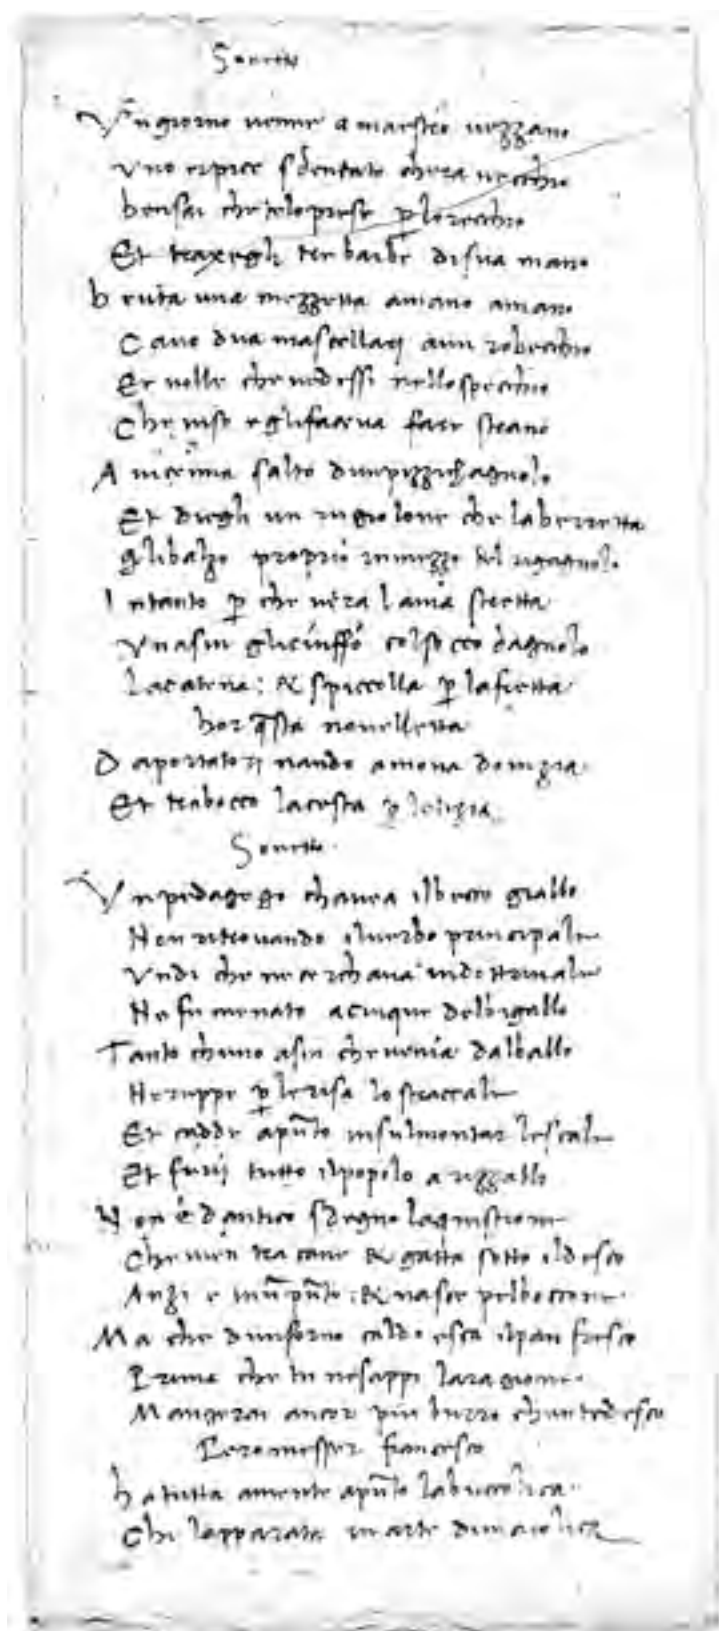 Sonetto
Vn giorno venne a maestro vezzano
vno erpice sdentato chera vecchio
ben sai che telo prese p lorecchio
Et traxegli tre barbe di sua mano
beuta una mezzetta amano amano
Cauo dua mascellari aun robecchio
Et uolle che uedessi nello specchio
Che uiso egli faceua fare strano
Auicenna salto dun pizzichagnolo
Et diegli un rugiolone che la berretta
gli balzo proprio in mezzo del rigagnolo
Intanto p che uera lauia stretta
Vnasin gli ciuffo colsocco dagnolo
la catena: & spiccolla p la fretta
hor qsta nouelletta
Da portato nando a mona donizia
Et trabocco la cesta p letizia
Sonetto
Vn pedagogo chauea ilbecco giallo
Non ritrouando iluerbo principale
Vndi che ne cerchaua indottrinale
Ne fu menato a cinque delbigallo
Tanto chuno asin che uenia dalballo
Ne ruppe p le risa lo straccale
Et cadde apunto insulmontar lescale
Et fuui tutto ilpopolo a uizzallo
Non e dantico sdegno laquistione
Che uien tra cane & gatta sotto ildesco
Anzi e innun punto: & nasce pelboccone
Ma che dunforno caldo esca ilpan fresco
Prima che tu nesappi laragione
Mangerai ancor piu burro chuntedesco
Pero messer francesco
ha tutta amente apunto labuccolica
Chi lapparata in arte dimaiolica